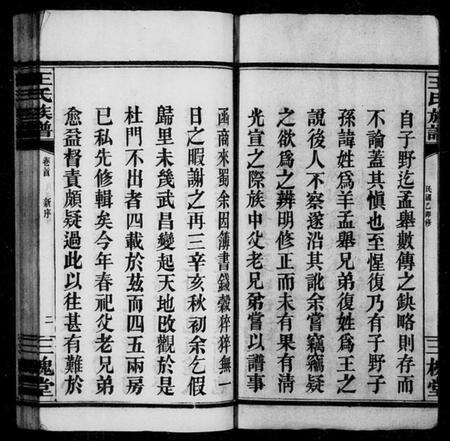 王氏族譜
民國乙卯序
三槐堂
自子野迄孟舉數傳之缺略則存而
不論蓋其慎也至惺復乃有子野子
孫諱姓爲羊孟舉兄弟復姓爲王之
說後人不察遂沿其訛余嘗竊竊疑
之欲爲之辨明修正而未有果有清
光宣之際族中父老兄弟嘗以譜事
函商來蜀余因簿書錢穀猝猝無一
日之暇謝之再三辛亥秋初余乞假
歸里未幾武昌變起天地改觀於是
杜門不出者四載於茲而四五兩房
已私先修輯矣今年春祀父老兄弟
愈益督責頗疑過此以往甚有難於
王氏族譜
卷首
新序
二
三槐堂